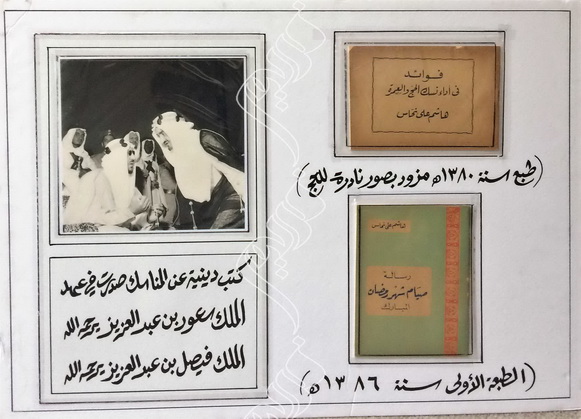 فوائد
في أداء نسك الحج والعمرة
هاشم علي نحاس
(طبع سنة ١٣٨٠ھ مزود بصور نادرة للحج)
هاشم علي نحاس
رسالة
صيام شهر رمضان
المبارك
(الطبعة الأولى سنة ١٣٨٦ھ)
كتب دينية عن المناسك صدرت في عهد
الملك سعود بن عبد العزيز يرحمه الله
الملك فيصل بن عبد العزيز يرحمه الله